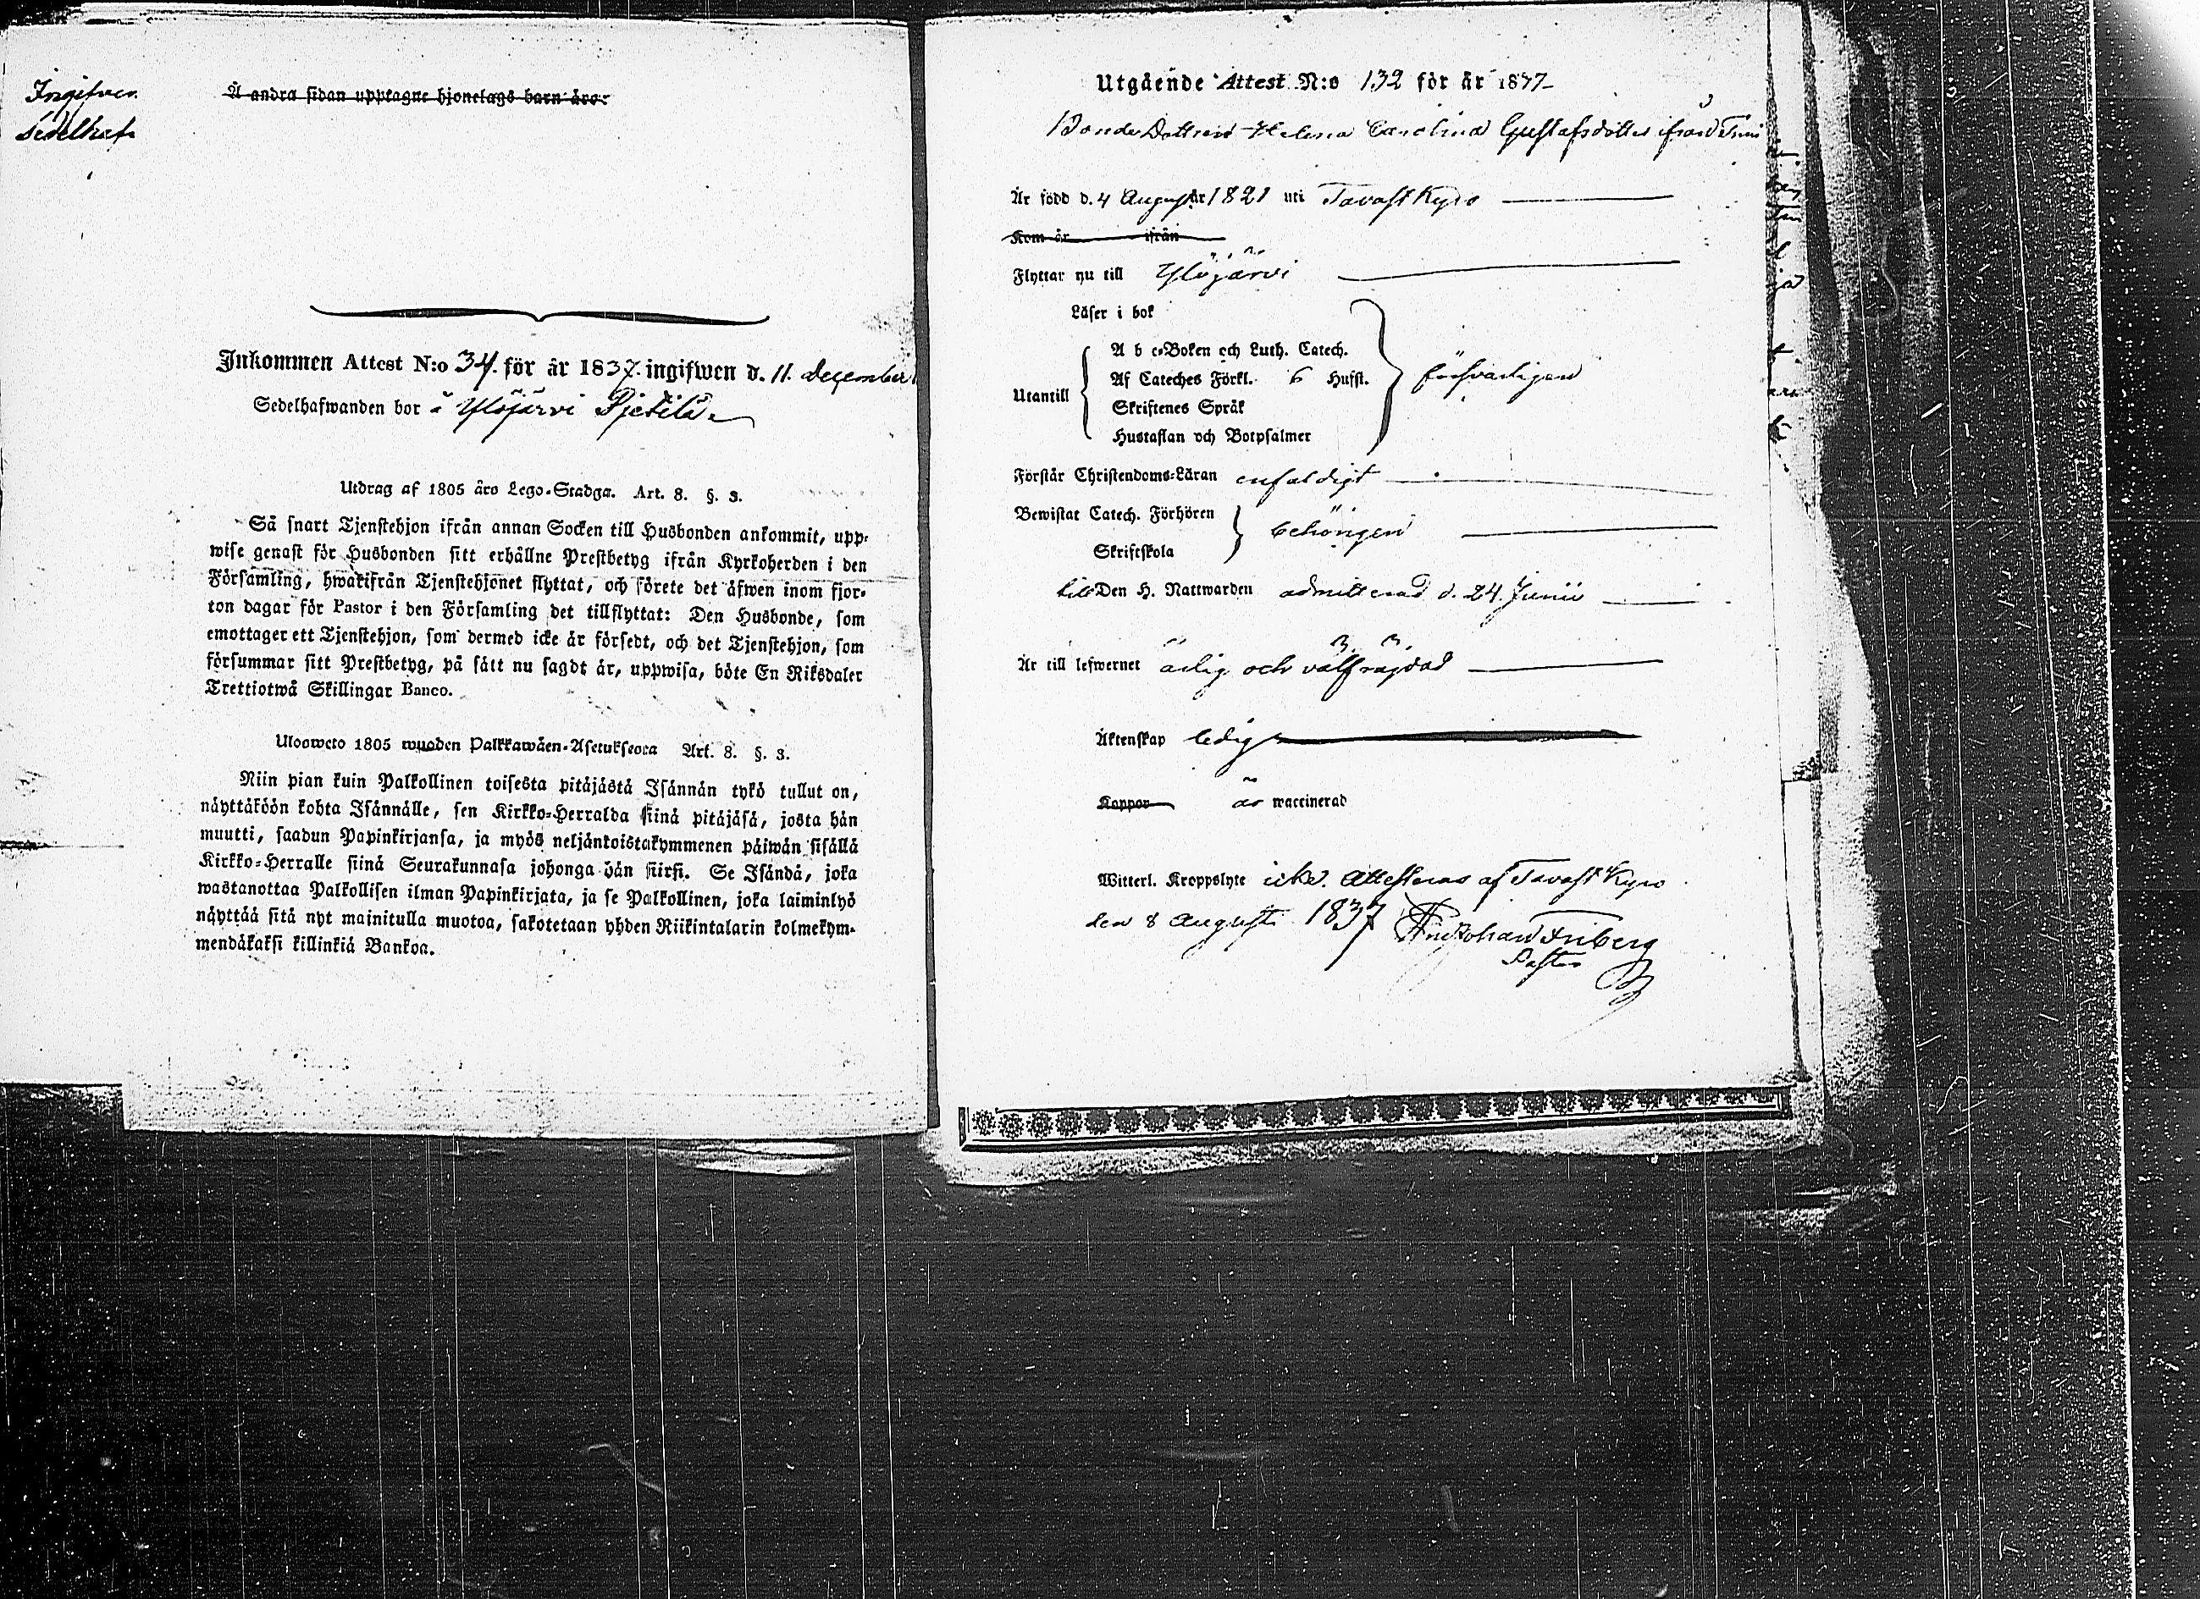 Ingifven
Sedelhafv
Å andra sidan upptagne hjonelags barn äro:
Inkommen Attest N:o 34. för år 1837. ingifwen d. 11. december
Sedelhafwanden bor å Ylöjärvi Pjetilä
Utdrag af 1805 års Lego-Stadga. Art. 8. §. 3.
Så snart Tjenstehjon ifrån annan Socken till Husbonden ankommit, upp-
wise genast för Husbonden sitt erhållne Prestbetyg ifrån Kyrkoherden i den
Församling, hwarifrån Tjenstehjonet flyttat, och förete det äfwen inom fjor-
ton dagar för Pastor i den Församling det tillflyttat: Den Husbonde, som
emottager ett Tjenstehjon, som dermed icke är försedt, och det Tjenstehjon, som
försummar sitt Prestbetyg, på sätt nu sagdt är, uppwisa, böte En Riksdaler
Trettiotwå Skillingar Banco.
Ulosweto 1805 wuoden Palkkawäen-Asetuksesta Art. 8. §. 3.
Niin pian kuin Palkollinen toisesta pitäjästä Isännän tykö tullut on,
näyttäköön kohta Isännälle, sen Kirkko-Herralda siinä pitäjäsä, josta hän
muutti, saadun Papinkirjansa, ja myös neljäntoistakymmenen päiwän sisällä
Kirkko-Herralle siinä Seurakunnasa johonga hän siirsi. Se Isändä, joka
wastanottaa Palkollisen ilman Papinkirjata, ja se Palkollinen, joka laiminlyö
näyttää sitä nyt mainitulla muotoa, sakotetaan yhden Riikintalarin kolmekym-
mendäkaksi killinkiä Bankoa.
Utgående Attest N:o 132 för år 1837
Bonde Dottren Helena Carolina Gustafsdotter ifrån Timi
Är född d. 4 August år 1821 uti Tavastkyro
Kom år ifrån
Flyttar nu till Ylöjärvi
Läser i bok
Utantill
A b c-Boken och Luth. Catech.
Af Cateches Förkl. 6 Hufst.
Skriftenes Språk
Hustaflan och Botpsalmer
försvarligen
Förstår Christendoms-Läran enfaldigt
Bewistat Catech. Förhören
Skriftskola
behörigen
till Den H. Nattwarden admitterad d. 24. Junii
Är till lefwernet ärlig och välfräjdad
Äktenskap ledig
Koppor är waccinerad
Witterl. Kroppslyte icke. Attesteras af Tavast Kyro
den 8 Augusti 1837 And Johan Friberg
Pastor